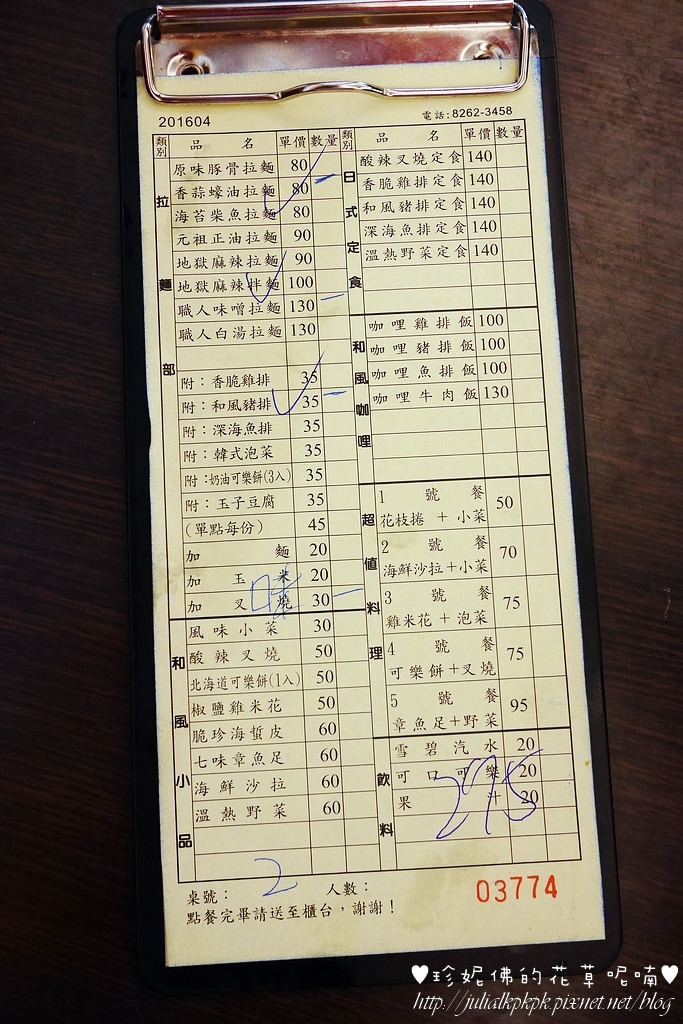 201604
電話:8262-3458
類別 品名 單價 數量
拉麵部
原味豚骨拉麵 80
香蒜蠔油拉麵 80
海苔柴魚拉麵 80
元祖正油拉麵 90
地獄麻辣拉麵 90
地獄麻辣拌麵 100
職人味噌拉麵 130
職人白湯拉麵 130
附：香脆雞排 35
附：和風豬排 35
附：深海魚排 35
附：韓式泡菜 35
附：奶油可樂餅(3入) 35
附：玉子豆腐 35
(單點每份) 45
加麵 20
加玉米 20
加叉燒 30
和風小品
風味小菜 30
酸辣叉燒 50
北海道可樂餅(1入) 50
椒鹽雞米花 50
脆珍海蜇皮 60
七味章魚足 60
海鮮沙拉 60
溫熱野菜 60
類別 品名 單價 數量
日式定食
酸辣叉燒定食 140
香脆雞排定食 140
和風豬排定食 140
深海魚排定食 140
溫熱野菜定食 140
和風咖哩
咖哩雞排飯 100
咖哩豬排飯 100
咖哩魚排飯 100
咖哩牛肉飯 130
超值料理
1號餐
花枝捲＋小菜 50
2號餐
海鮮沙拉＋小菜 70
3號餐
雞米花＋泡菜 75
4號餐
可樂餅＋叉燒 75
5號餐
章魚足＋野菜 95
飲料
雪碧汽水 20
可口可樂 20
果汁 20
295
桌號： 2 人數：
03774
點餐完畢請送至櫃台，謝謝！
♥珍妮佛的花草呢喃♥
http://julialkpkpk.pixnet.net/blog